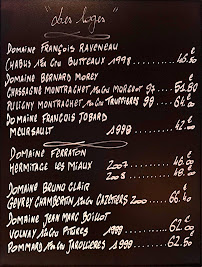 "chez loger"
Domaine François Raveneau
Chablis 1er Cru Butteaux 1998
Domaine Bernard Morey
Chassagne Montrachet 1er Cru Morgeot 97 53.80
Puligny Montrachet 1er Cru Truffières 99 64.00
Domaine François Jobard
Meursault 1999 42.00
Domaine Ferraton
Hermitage Les Miaux 2007 46.00
2008 48.00
Domaine Bruno Clair
Gevrey Chambertin 1er Cru Cazetiers 2000 66.40
Domaine Jean Marc Boillot
Volnay 1er Cru Pitures 1999 62.00
Pommard 1er Cru Jarollieres 1999 62.50